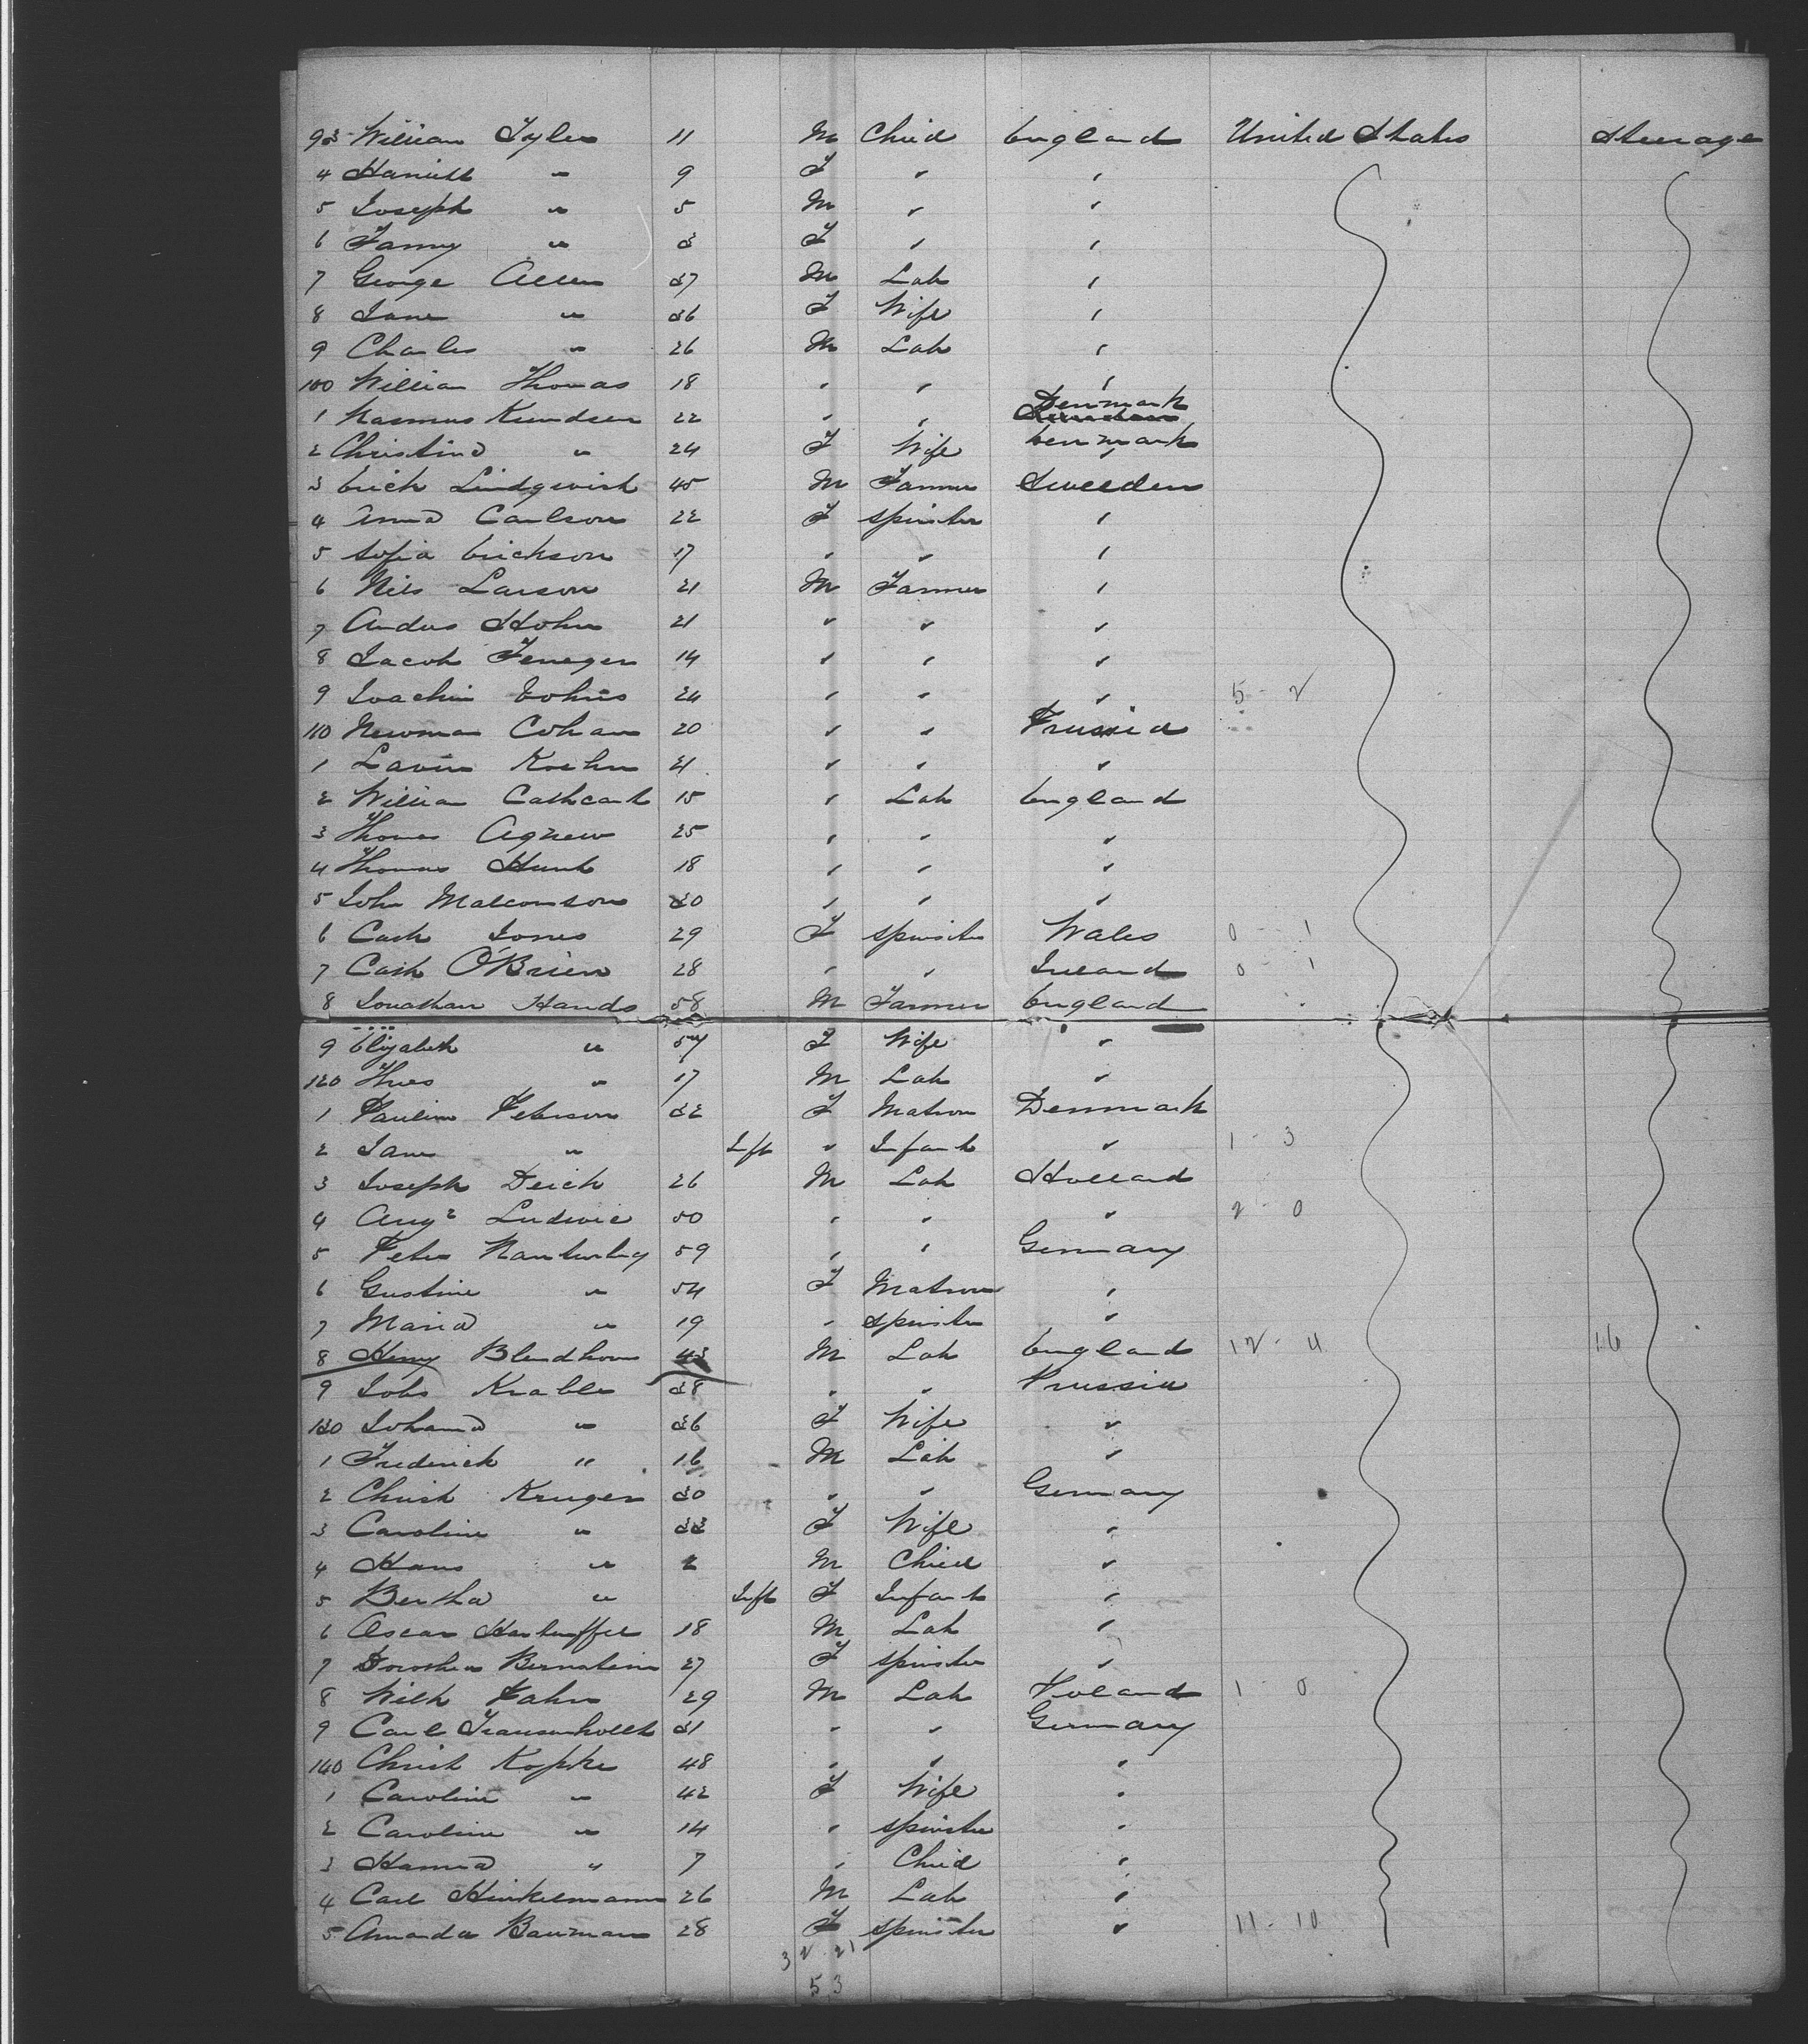 93 William Tyler 11 M Child England United States Steerage
4 Harriett " 9 F " "
5 Joseph " 5 M " "
6 Fanny " 3 F " "
7 George Allen 37 M Lab "
8 Jane " 36 F Wife "
9 Charles " 26 M Lab "
100 William Thomas 18 " " "
1 Rasmus Knudsen 22 " " Denmark
2 Christina " 24 F Wife Denmark "
3 Erick Lindqwist 45 M Farmer Sweeden
4 Anna Carlson 22 F Spinster "
5 Sofia Erickson 17 " " "
6 Nils Larson 21 M Farmer "
7 Andus Hohn 21 " " "
8 Jacob 14 " " "
9 Joachim 24 " " " 5 - 2
110 Newman Cohan 20 " " Prussia
1 Koehn 21 " " "
2 William Cathcart 15 " Lab England
3 Thomas Agnew 25 " " "
4 Thomas Hunt 18 " " "
5 John Malcomson 30 " " "
6 Cath Jones 29 F Spinster Wales 0 - 1
7 Cath O'Brien 28 " " Ireland 0 - 1
8 Jonathan Hands 58 M Farmer England
9 Elizabeth " 57 F Wife "
120 " 17 M Lab "
1 Pauline Peterson 32 F Matron Denmark
2 Jane " Inft " Infant " 1 - 3
3 Joseph Deich 26 M Lab Holland
4 Augt Ludwic 50 " " " 2 - 0
5 Peter 59 " " Germany
6 Gustine " 54 F Matron "
7 Maria " 19 " Spinster "
8 Henry Blendhorn 43 M Lab England 12 - 4 16
9 Johs Krable 38 " " Prussia
130 Johanna " 36 F Wife "
1 Frederick " 16 M Lab "
2 Christ Kruger 30 " " Germany
3 Caroline " 33 F Wife "
4 Hans " 2 M Child "
5 Bertha " Inft F Infant "
6 Oscar 18 M Lab "
7 Dorothea Bernstein 27 F Spinster "
8 Wilh Hahn 29 M Lab Poland 1 - 0
9 Carl 31 " " Germany
140 Christ Kopke 48 " " "
1 Caroline " 42 F Wife "
2 Caroline " 14 " Spinster "
3 Hanna " 7 " Child "
4 Carl Hinkelmann 26 M Lab "
5 Amanda Bauman 28 F Spinster " 11 - 10
32 21
53